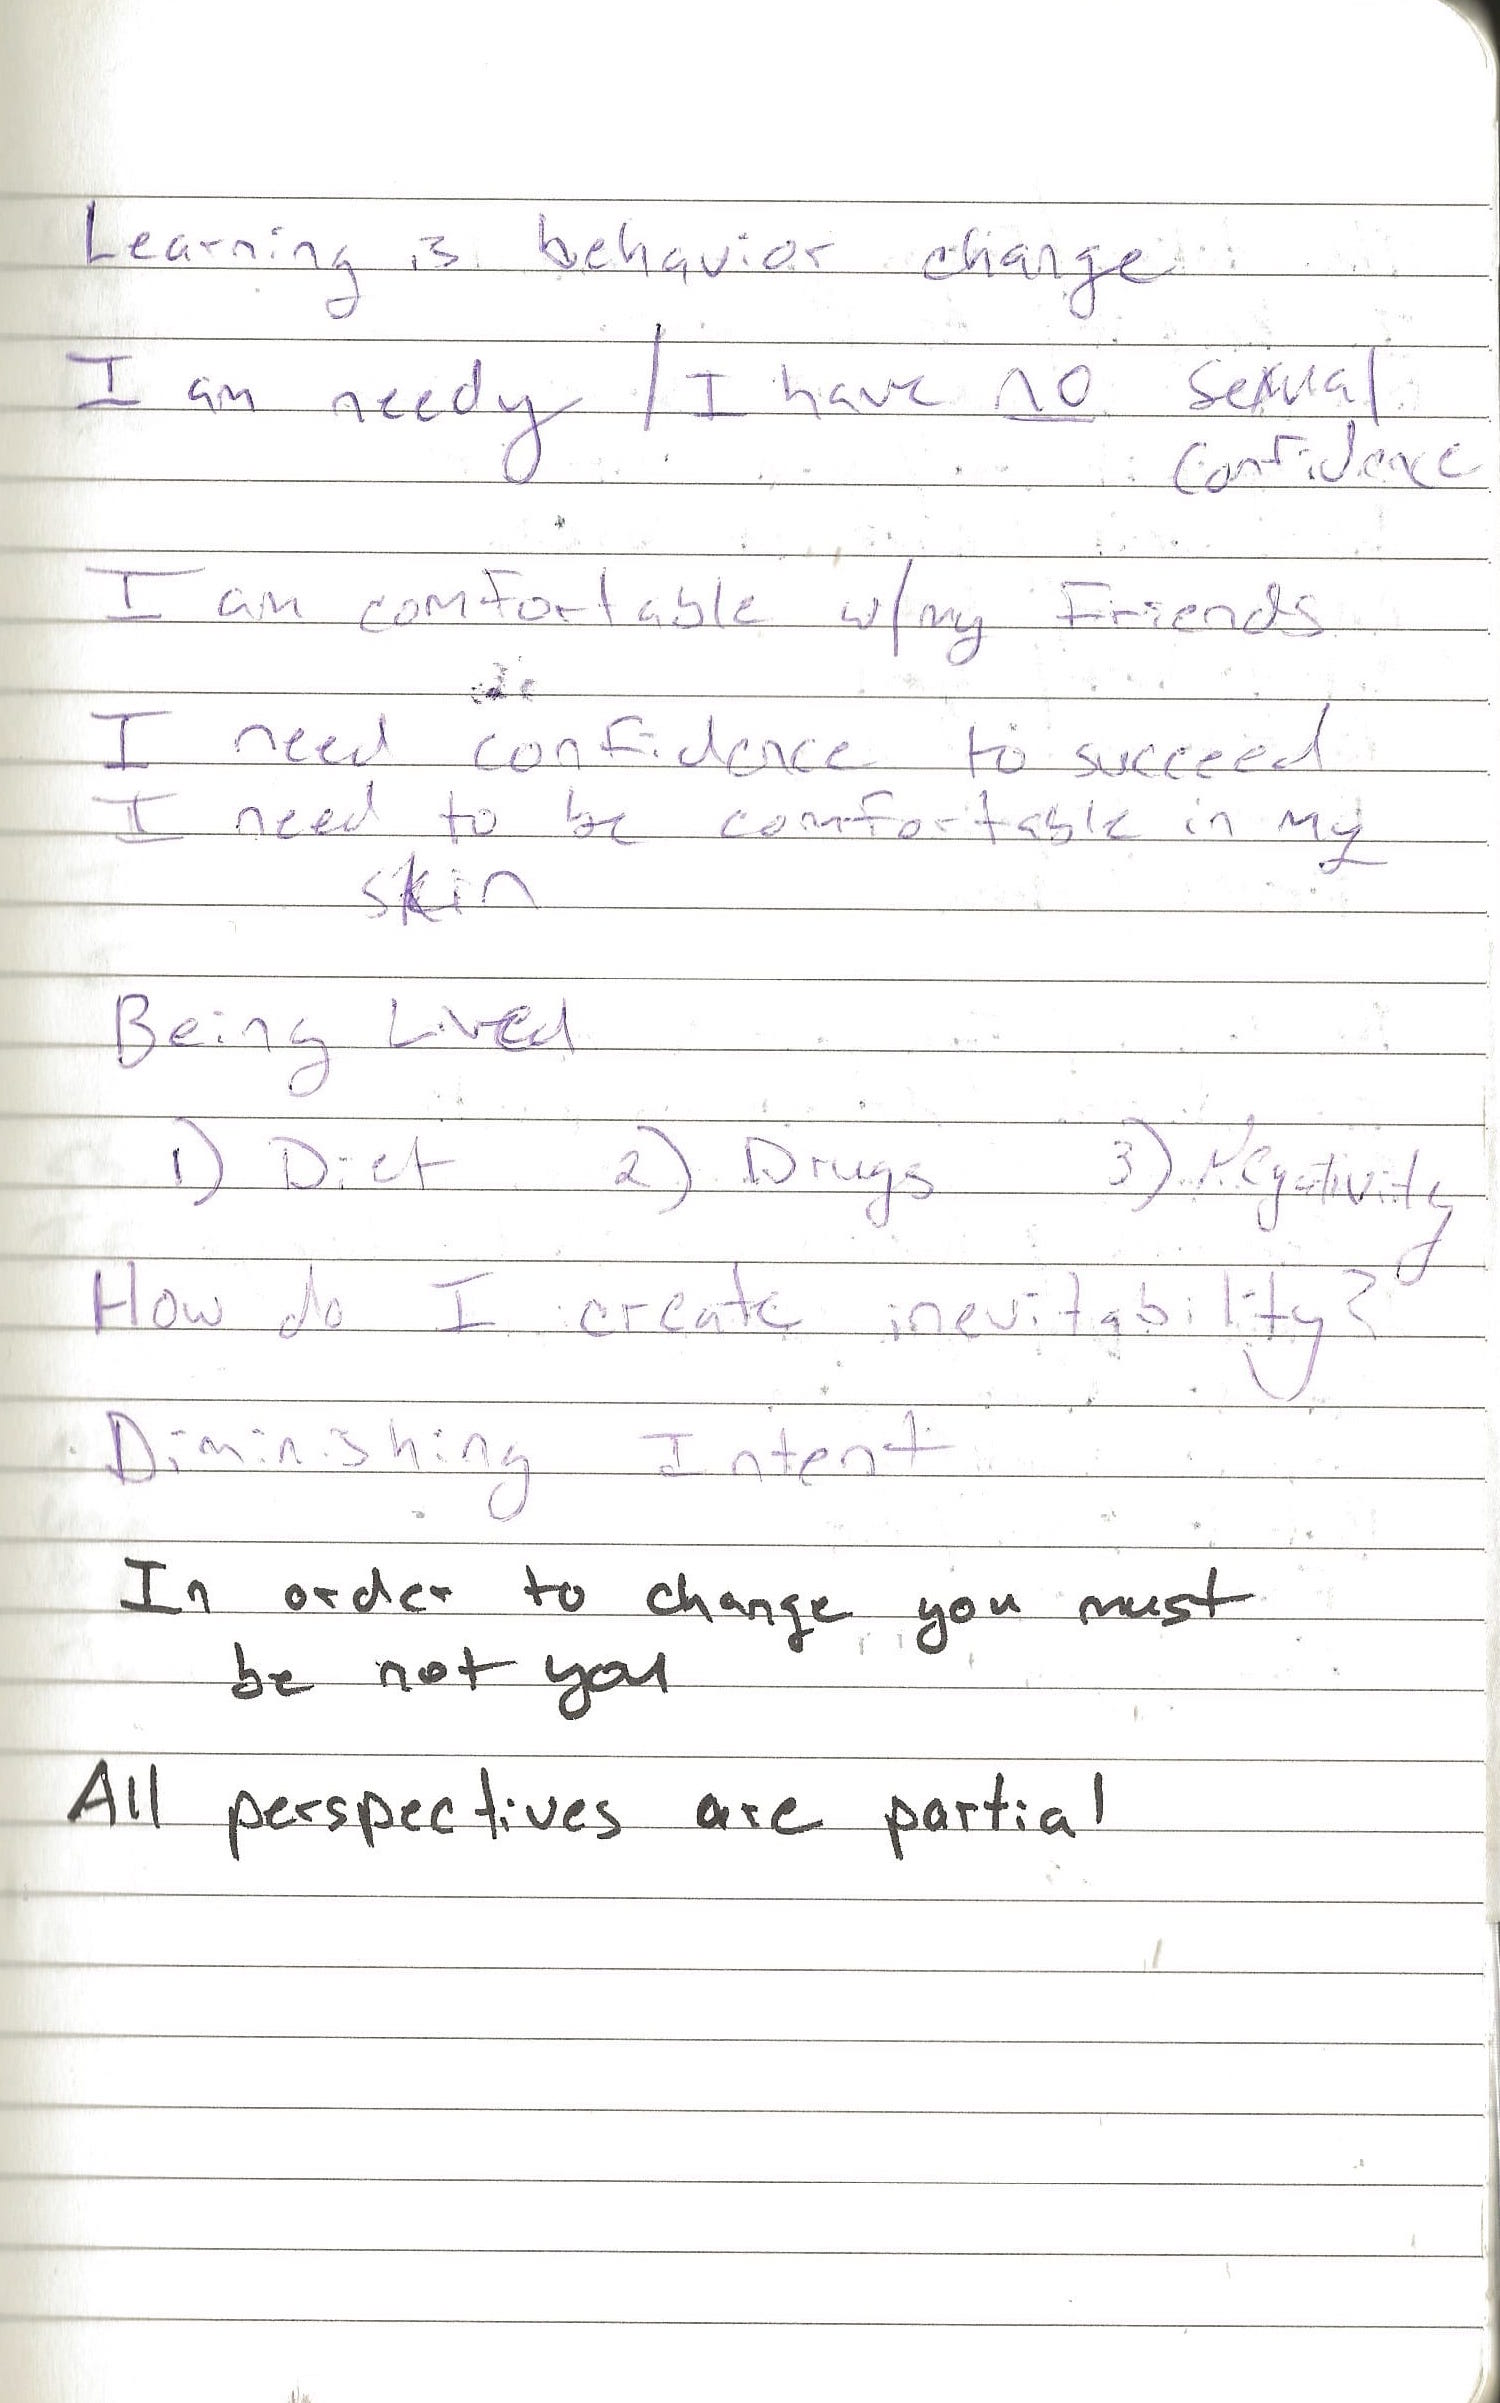 Learning is behavior change
I am needy / I have no sexual
confidence
I am comfortable w/my Friends
I need confidence to succeed
I need to be comfortable in my
skin
Being Lived
1) Diet 2) Drugs 3) Negativity
How do I create inevitability?
Diminishing Intent
In order to change you must
be not you
All perspectives are partial